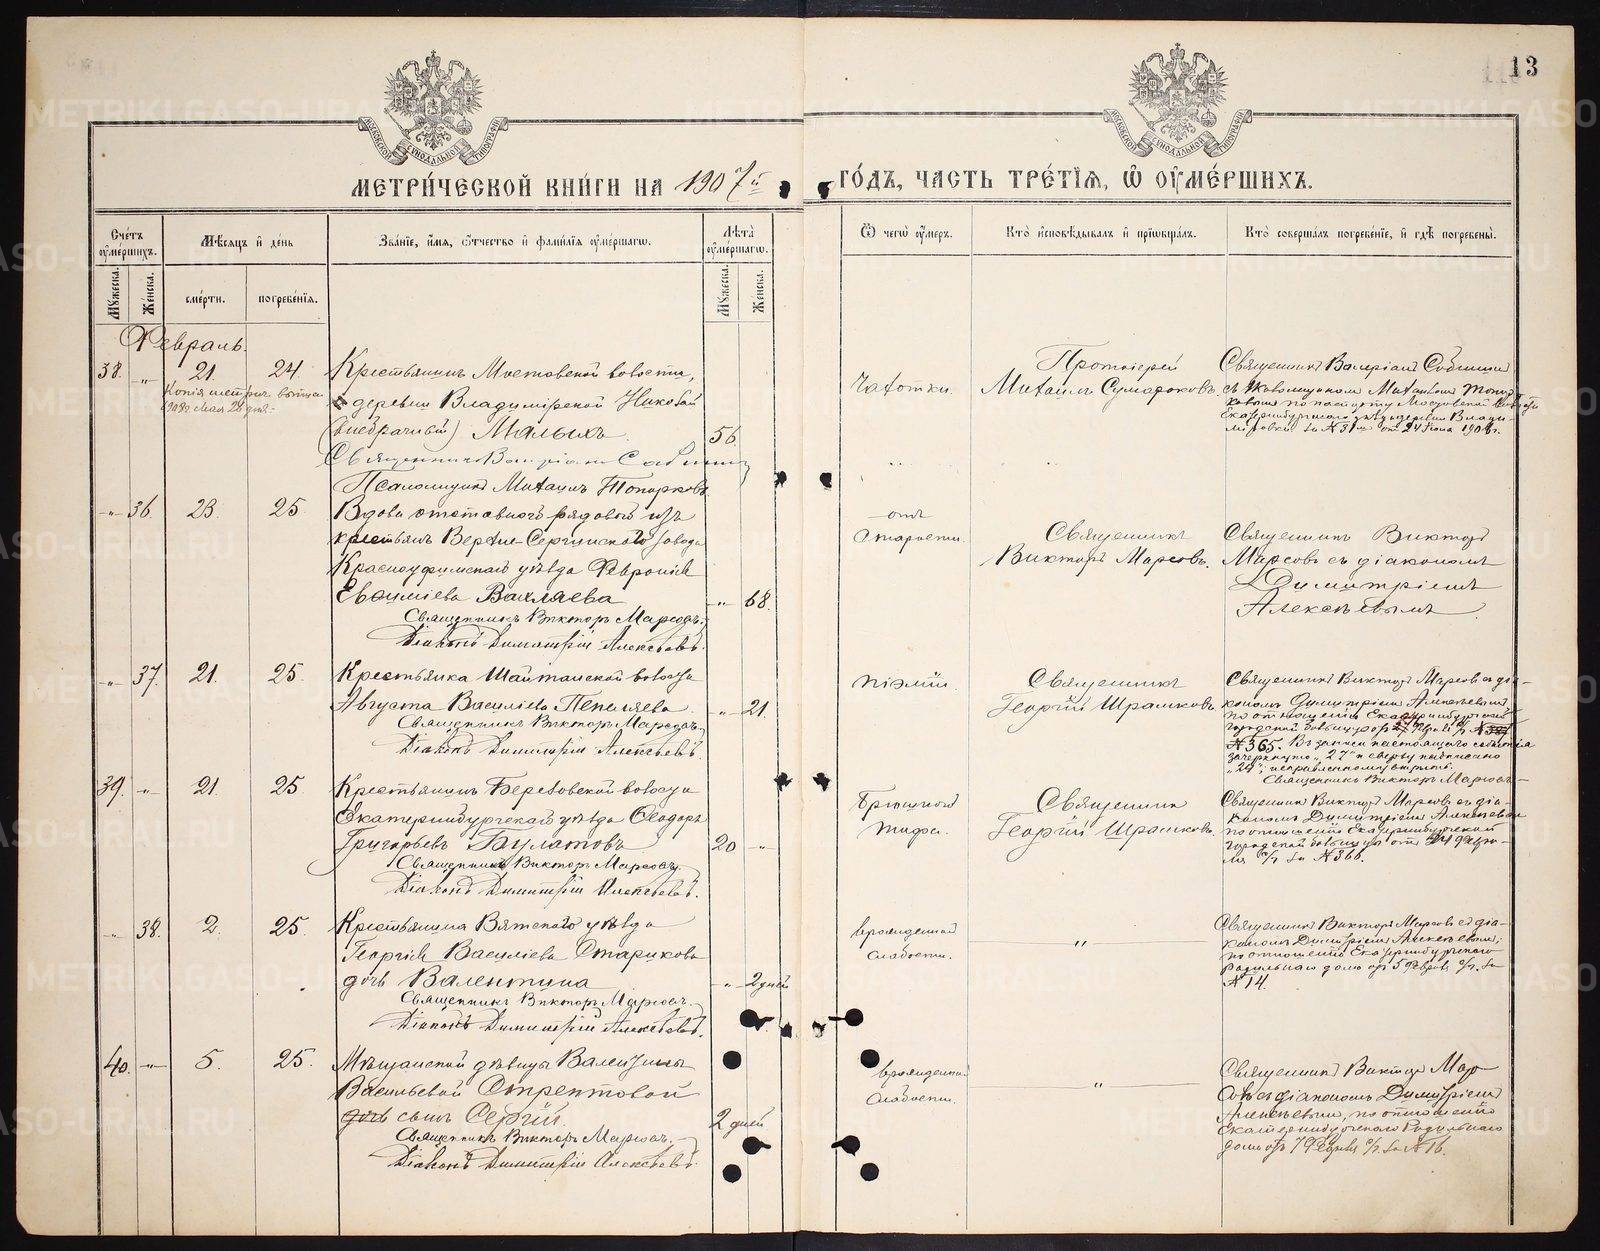 13
МЕТРИ́ЧЕСКОЙ КНИ́ГИ НА 1907й ГО́ДЪ, ЧАСТЬ ТРЕ́ТІѦ, Ѽ ОУ҆МЕ́РШИХЪ.
Счетъ оумершихъ.
Мѣсяцъ и день
Званіе, имя, отчество и фамилія оумершагѡ.
Лѣта оумершагѡ.
Ѿ чегѡ оумеръ.
Кто исповѣдывалъ и пріѡбщалъ.
Кто совершалъ погребеніе, и гдѣ погребены.
Мужеска.
Женска.
смерти.
погребенія.
Мужеска.
Женска.
Февраль.
38. „ 21. 24
Крестьянинъ Мостовской волости,
деревни Владимірской Николай
(внебрачный) Малыхъ. 56.
Чахотки.
Протоіерей
Михаилъ Сумароковъ.
Священникъ Валеріанъ
Псаломщикъ Михаилъ Топорковъ
„ 36. 23. 25
Вдова отставного рядового изъ
крестьянъ Верхне-Сергинского завода
Красноуфимскаго уѣзда Февронія
Евфиміева Вахляева „ 68.
Священникъ Викторъ Марсовъ.
Діаконъ Димитрій Алексѣевъ.
отъ
старости.
Священникъ
Викторъ Марсовъ.
Священникъ Викторъ
Марсовъ съ діакономъ
Димитріемъ
Алексѣевымъ
„ 37. 21. 25.
Крестьянка Шайтанской волости
Августа Васильева Пепеляева „ 21.
Священникъ Викторъ Марсовъ.
Діаконъ Димитрій Алексѣевъ.
піэміи.
Священникъ
Георгій Шрамковъ.
Священникъ Викторъ Марсовъ съ діа-
кономъ Димитріемъ Алексѣевымъ
по отношенію Екатеринбургской
№ 365. Въ записи настоящаго событія
зачеркнуто „27“ и сверху надписано
Священникъ Викторъ Марсовъ
39. „ 21 25
Крестьянинъ Березовской волости
Екатеринбургскаго уѣзда Ѳеодоръ
Григорьевъ Булатовъ 20 „
Священникъ Викторъ Марсовъ.
Діаконъ Димитрій Алексѣевъ.
Брюшного
тифа.
Священникъ
Георгій Шрамковъ.
Священникъ Викторъ Марсовъ съ діа-
кономъ Димитріемъ Алексѣевымъ
по отношенію Екатеринбургской
городской больницы отъ 24 Февра-
ля с/г за № 366.
„ 38. 2. 25.
Крестьянина Вятскаго уѣзда
Георгія Васильева Старикова
дочь Валентина „ 2 дней
Священникъ Викторъ Марсовъ.
Діаконъ Димитрій Алексѣевъ.
врожденной
слабости.
„
Священникъ Викторъ Марсовъ съ діа-
кономъ Димитріемъ Алексѣевымъ,
по отношенію Екатеринбургскаго
Родильнаго дома отъ 5 Февр. с/г. за
№ 14.
40. „ 5. 25.
Мѣщанской дѣвицы Валентины
Васильевой Стрептовой
дочь сынъ Сергій. 2 дней
Священникъ Викторъ Марсовъ.
Діаконъ Димитрій Алексѣевъ.
врожденной
слабости.
„
Священникъ Викторъ Мар-
совъ съ діакономъ Димитріемъ
Алексѣевымъ, по отношенію
Екатеринбургскаго Родильнаго
дома отъ 7 Февр. с/г. за № 16.